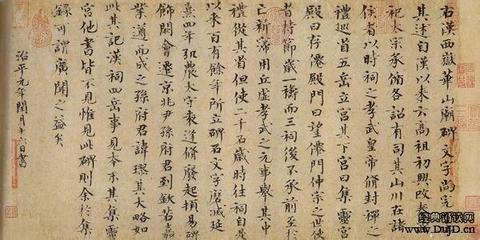 右漢西嶽華山廟碑文字尚完
其述自漢以來云高祖初興改秦
祀太宗承循各詔有司其山川在諸
侯者以時祠之孝武皇帝脩封禪之
禮巡省五岳立宮其下宮曰集靈宮
殿曰存僊殿門曰望僊門仲宗之世使
者持節歲一禱而三祠後不承前至于
亡新寖用丘虛孝武之元事舉其中
禮從其省但使二千石歲時往祠自是
以來百有餘年所立碑石文字磨滅延
熹四年弘農太守袁逢脩廢起頓易碑
飾闕會遷京兆尹孫府君到欽若嘉
業遵而成之孫府君諱璆其大略如
此其記漢祠四岳事見本末其集靈
宮他書皆不見惟見此碑則余於集
錄可謂廣聞之益矣
治平元年閏月十六日書